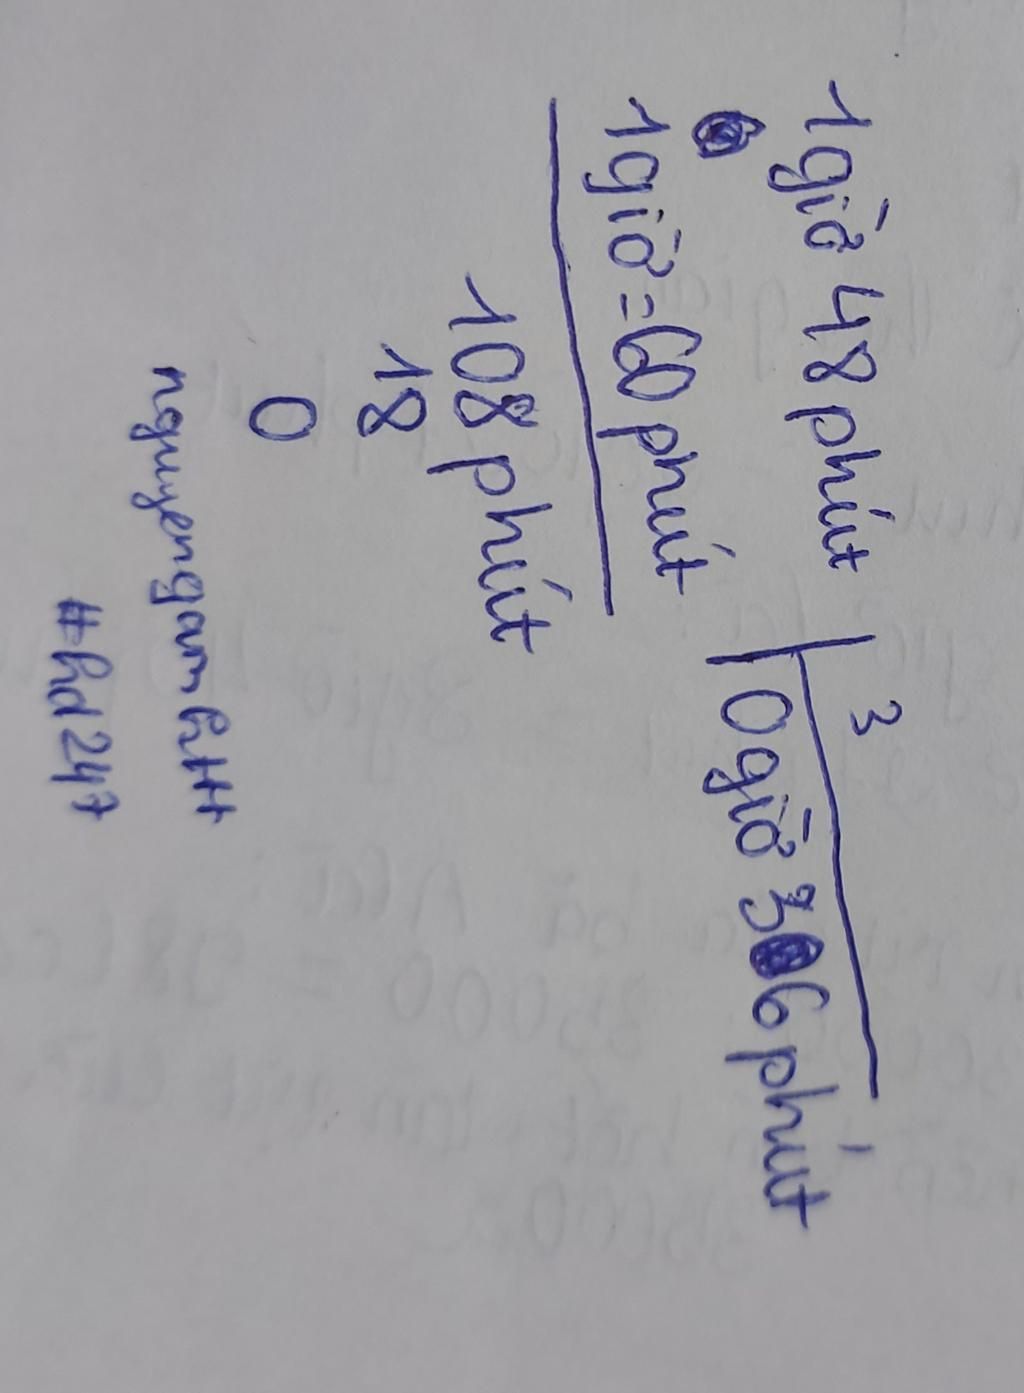 1giờ 48 phút 3
0giờ 36phút
1giờ = 60 phút
108 phút
18
0
nguyengamhtt
#hd247